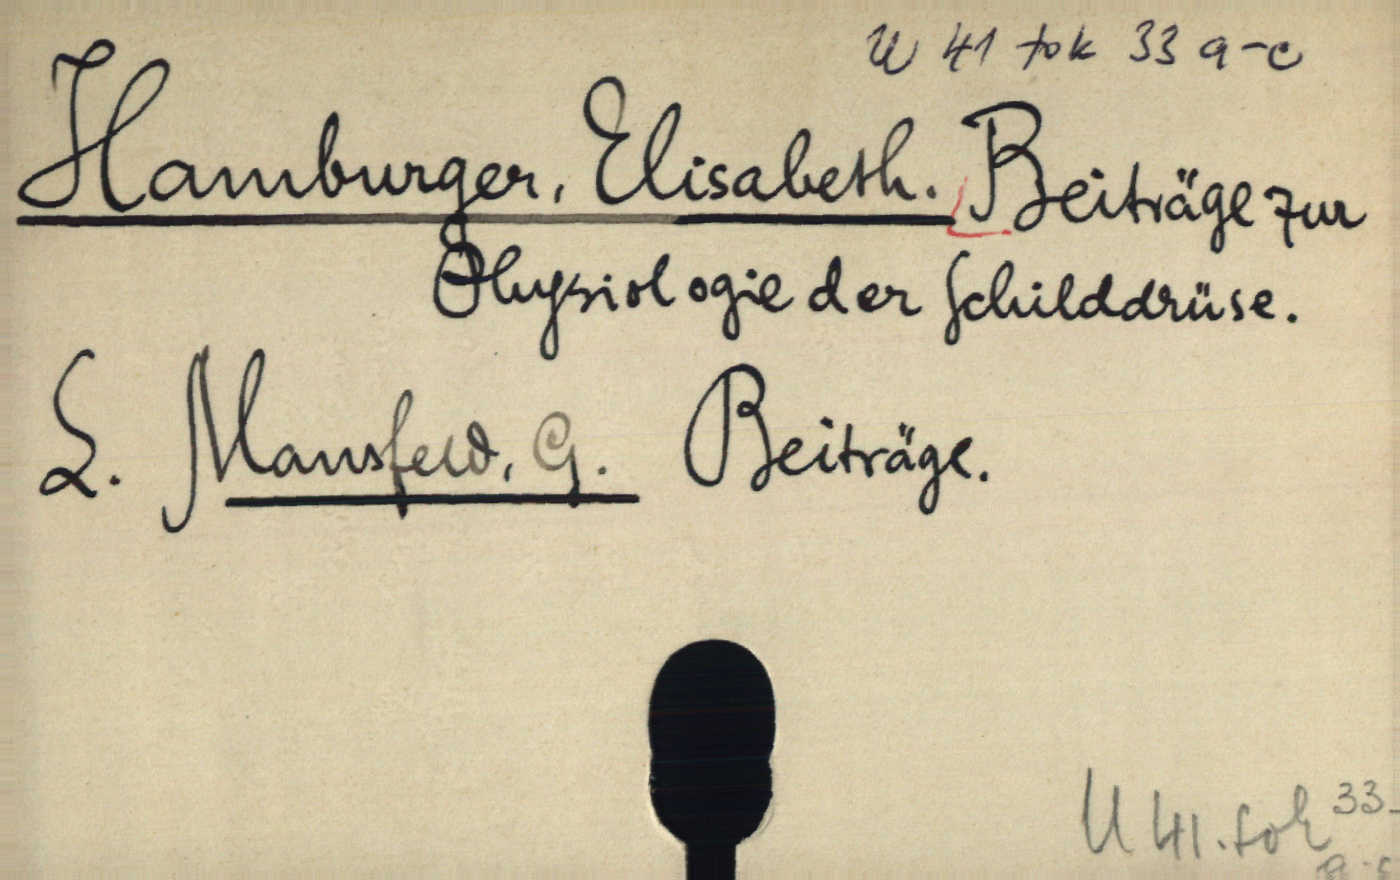 U 41 tok 33 a-c
Hamburger, Elisabeth. Beiträge zur
Physiologie der Schilddrüse.
L. Mansfeld, G. Beiträge.
U 41. tok 33-